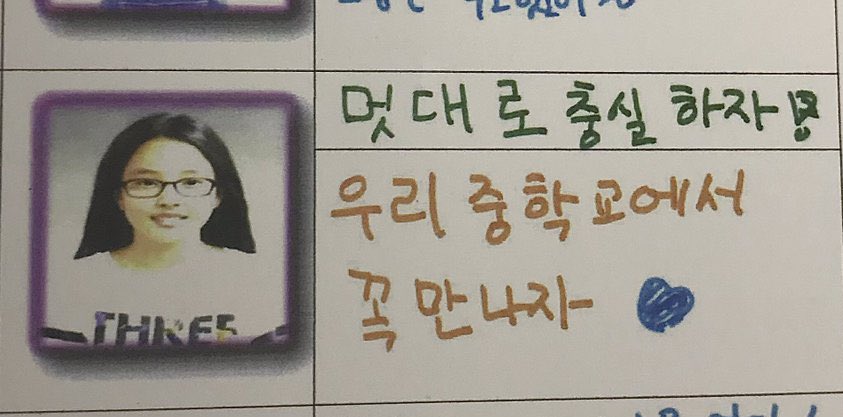 멋대로 충실하자!
우리 중학교에서
꼭 만나자
THREE